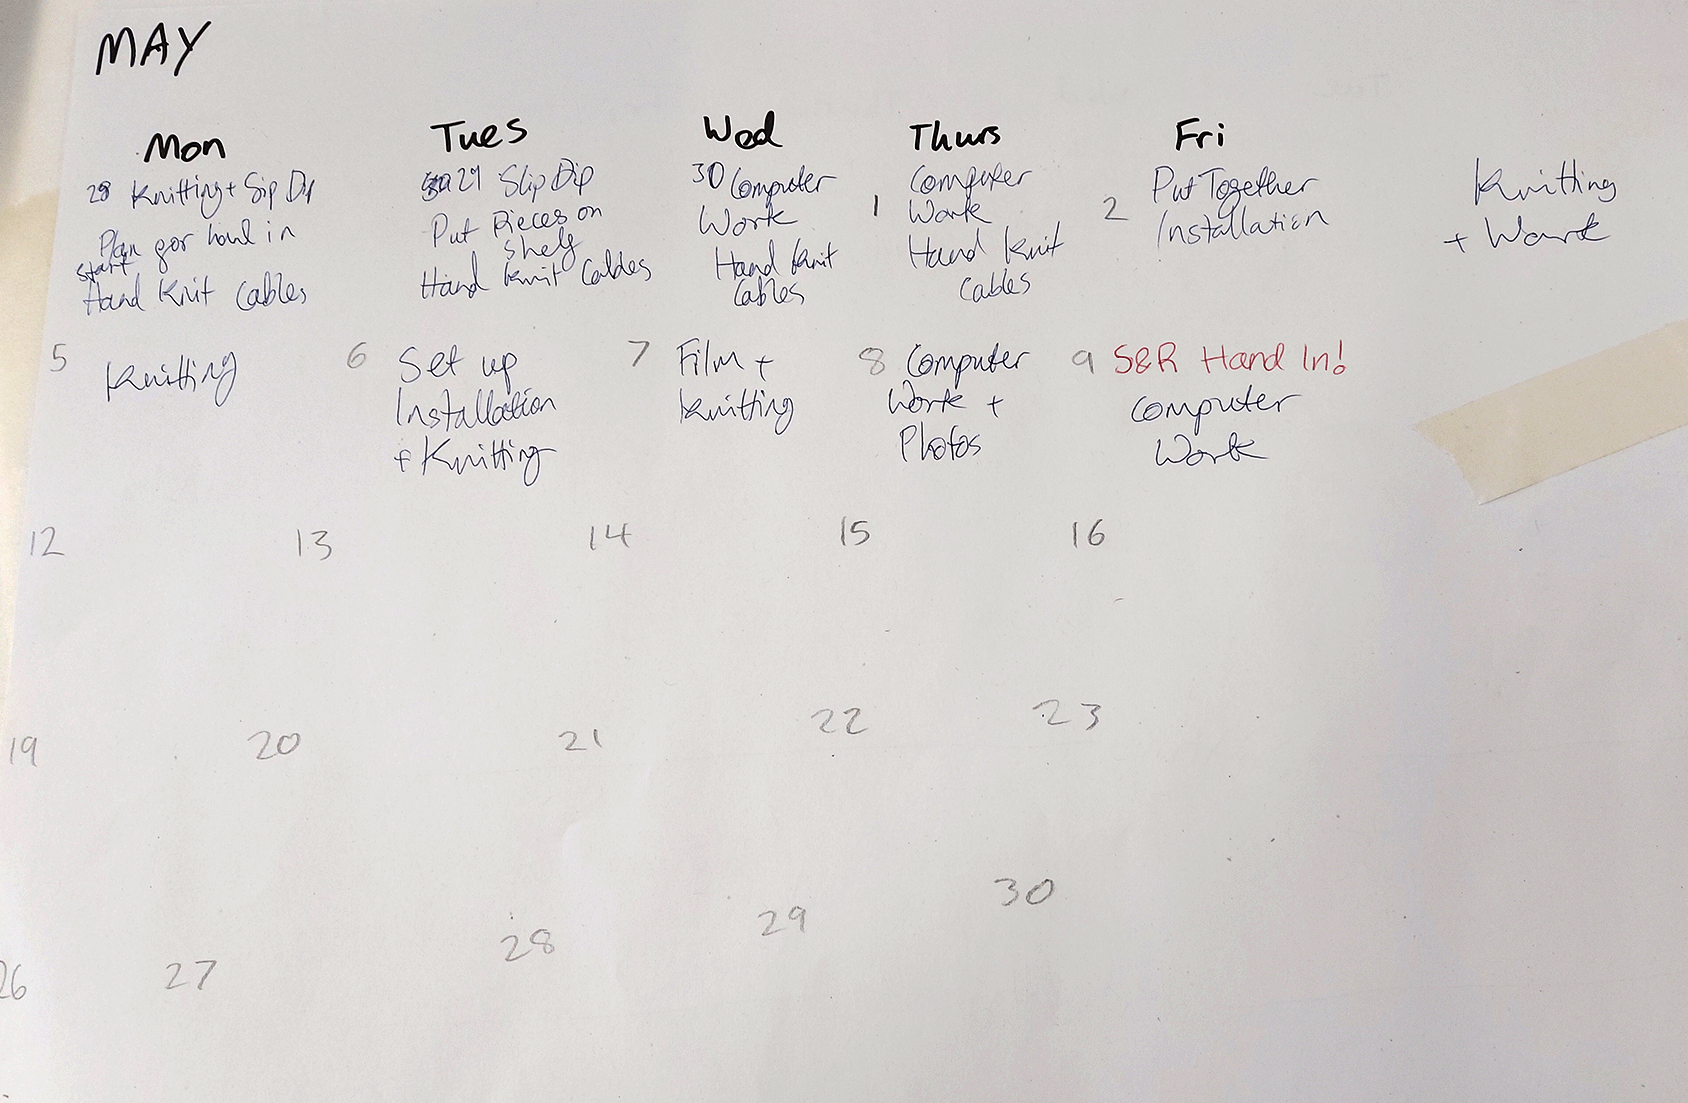 MAY
Mon
Tues
Wed
Thurs
Fri
28 Knitting + Slip Dip
Plan for haul in
start
Hand Knit Cables
29 Slip Dip
Put Pieces on
shelf
Hand Knit Cables
30 Computer
Work
Hand Knit
Cables
1 Computer
Work
Hand Knit
Cables
2 Put Together
Installation
Knitting
+ Work
5 Knitting
6 Set up
Installation
+ Knitting
7 Film +
Knitting
8 Computer
Work +
Photos
9 S&R Hand In!
Computer
Work
12
13
14
15
16
19
20
21
22
23
26
27
28
29
30